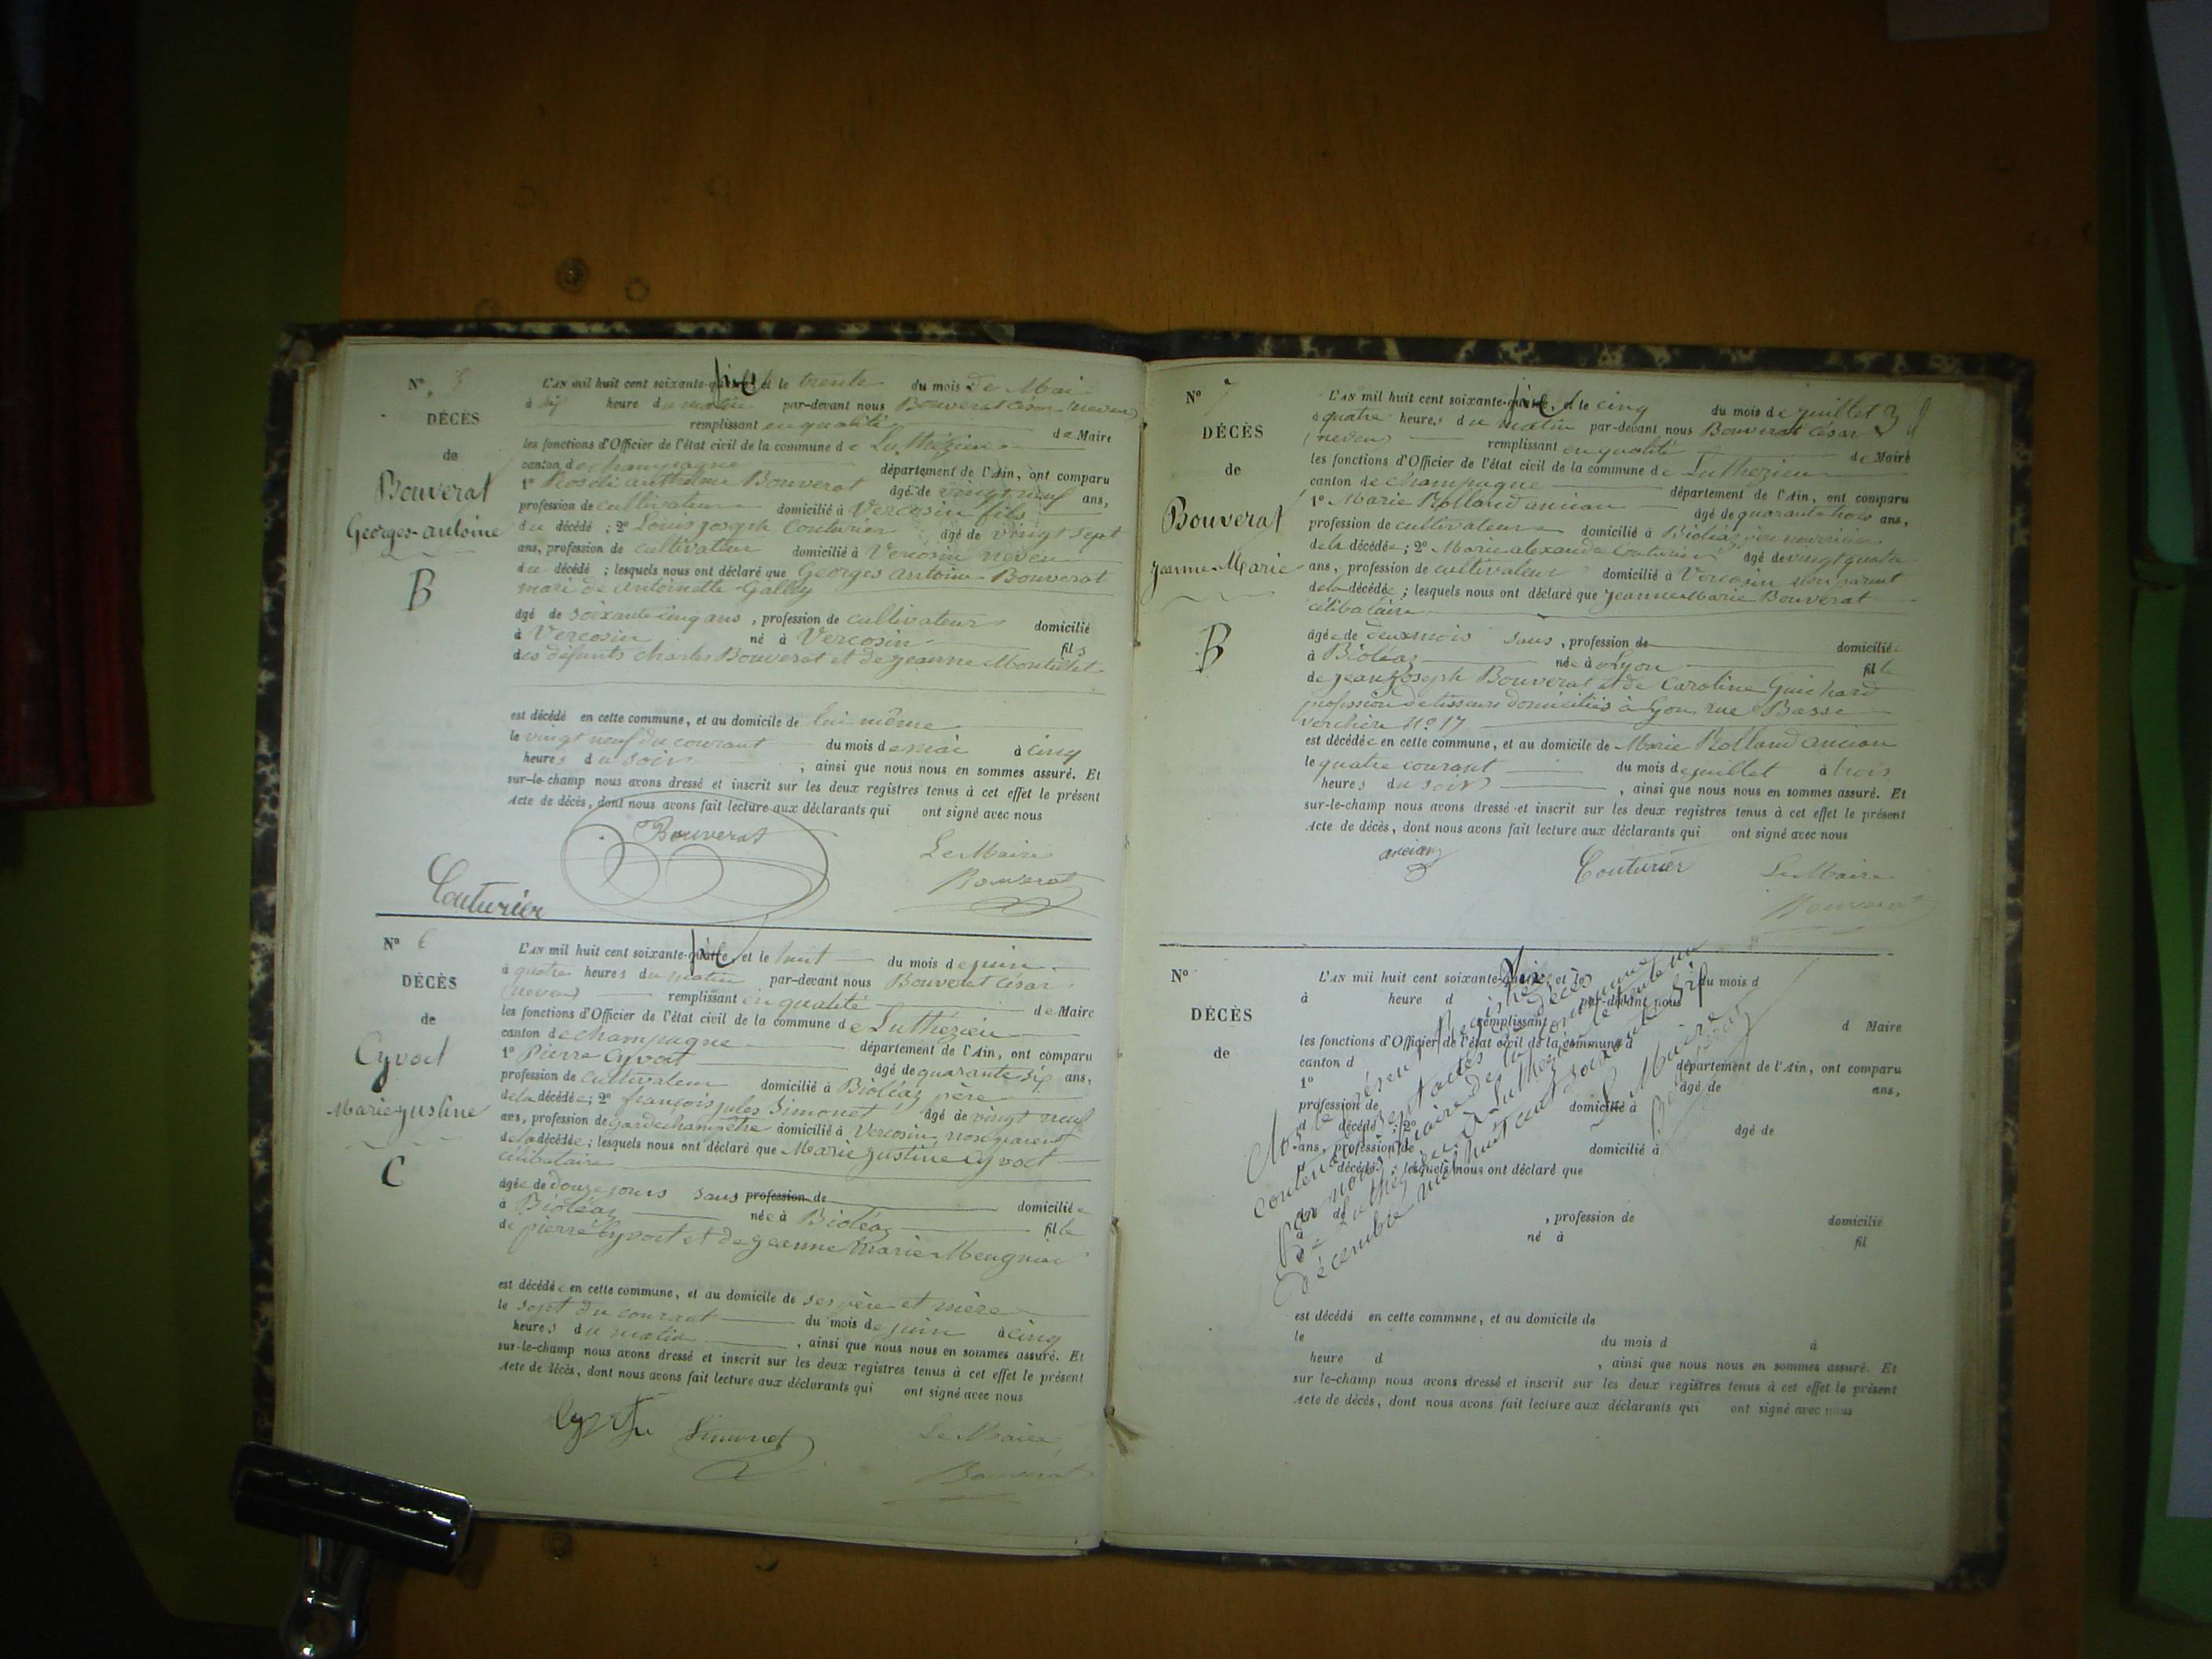 N° 5
DÉCÈS
de
Bouverat
Georges-antoine
B
L'AN mil huit cent soixante-six et le trente du mois de Mai
à six heure du matin par-devant nous Bouverat César (neveu)
remplissant en qualité de Maire
les fonctions d'Officier de l'état civil de la commune de Luthézieu
canton de champagne département de l'Ain, ont comparu
1° Bouverat âgé de vingt neuf ans,
profession de cultivateur domicilié à Vercosin fils
du décédé ; 2° Louis joseph Couturier âgé de vingt sept
ans, profession de cultivateur domicilié à Vercosin neveu
du décédé ; lesquels nous ont déclaré que Georges antoine Bouverat
mari de antoinette Gallay
âgé de soixante cinq ans, profession de cultivateur domicilié
à Vercosin né à Vercosin fils
des défunts charles Bouverat et de jeanne Montillet
est décédé en cette commune, et au domicile de lui même
le vingt neuf du courant du mois de mai à cinq
heures du soir, ainsi que nous nous en sommes assuré. Et
sur-le-champ nous avons dressé et inscrit sur les deux registres tenus à cet effet le présent
Acte de décès, dont nous avons fait lecture aux déclarants qui ont signé avec nous
Bouverat
Le Maire
Couturier
Bouverat
N° 6
DÉCÈS
de
Cyvoct
Marie justine
C
L'AN mil huit cent soixante-six et le huit du mois de juin
à quatre heures du matin par-devant nous Bouverat César
(neveu) remplissant en qualité de Maire
les fonctions d'Officier de l'état civil de la commune de Luthézieu
canton de champagne département de l'Ain, ont comparu
1° Pierre Cyvoct âgé de quarante six ans,
profession de cultivateur domicilié à Bioléaz père
de la décédée ; 2° françois jules Simonet âgé de vingt neuf
ans, profession de garde champêtre domicilié à Vercosin non parent
de la décédée ; lesquels nous ont déclaré que Marie justine Cyvoct
célibataire
âgée de douze jours sans profession de domiciliée
à Bioléaz née à Bioléaz fille
de pierre Cyvoct et de jeanne Marie
est décédée en cette commune, et au domicile de ses père et mère
le sept du courant du mois de juin à cinq
heures du matin, ainsi que nous nous en sommes assuré. Et
sur-le-champ nous avons dressé et inscrit sur les deux registres tenus à cet effet le présent
Acte de décès, dont nous avons fait lecture aux déclarants qui ont signé avec nous
Simonet
Le Maire
Bouverat
N° 7
DÉCÈS
de
Bouverat
Jeanne Marie
B
L'AN mil huit cent soixante-six, et le cinq du mois de juillet 3
à quatre heures du matin par-devant nous Bouverat César
(neveu) remplissant en qualité de Maire
les fonctions d'Officier de l'état civil de la commune de Luthezieu
canton de champagne département de l'Ain, ont comparu
1° Marie Rolland ancian âgé de quarante trois ans,
profession de cultivateur domicilié à Bioléaz
de la décédée ; 2° Marie alexandre Couturier âgé de vingt quatre
ans, profession de cultivateur domicilié à Vercosin non parent
de la décédée ; lesquels nous ont déclaré que Jeanne Marie Bouverat
célibataire
âgée de deux mois sans, profession de domiciliée
à Bioléaz née à Lyon fille
de jean joseph Bouverat et de Caroline Guichard
profession de tisseurs domiciliés à Lyon rue Basse
verchère N° 17
est décédée en cette commune, et au domicile de Marie Rolland ancian
le quatre courant du mois de juillet à trois
heures du soir, ainsi que nous nous en sommes assuré. Et
sur-le-champ nous avons dressé et inscrit sur les deux registres tenus à cet effet le présent
Acte de décès, dont nous avons fait lecture aux déclarants qui ont signé avec nous
ancian
Couturier
Le Maire
Bouverat
N°
DÉCÈS
de
L'AN mil huit cent soixante-six, et le du mois d
à heure d par-devant nous
remplissant d Maire
les fonctions d'Officier de l'état civil de la commune d
canton d département de l'Ain, ont comparu
1° âgé de ans,
profession de domicilié à
d décédé ; 2° âgé de
ans, profession de domicilié à
d décédé ; lesquels nous ont déclaré que
âgé de , profession de domicilié
à né à fil
de
est décédé en cette commune, et au domicile de
le du mois d à
heure d , ainsi que nous nous en sommes assuré. Et
sur-le-champ nous avons dressé et inscrit sur les deux registres tenus à cet effet le présent
Acte de décès, dont nous avons fait lecture aux déclarants qui ont signé avec nous
Clos le présent Registre
contenant sept actes de décès
Par nous Maire de la commune
de Luthézieu à Luthézieu le trente un
décembre mil huit cent soixante six
Le Maire
Bouverat